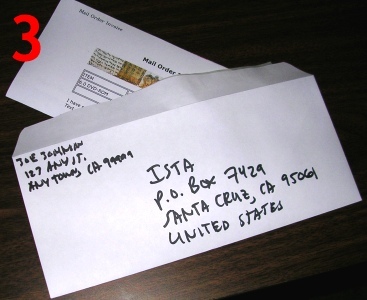 3
Mail Order Invoice
Mail Order
ITEM
DVD-ROM
I have
JOE
127 ANY ST.
CA 99999
ISTA
P.O. BOX 7429
SANTA CRUZ, CA 95061
UNITED STATES